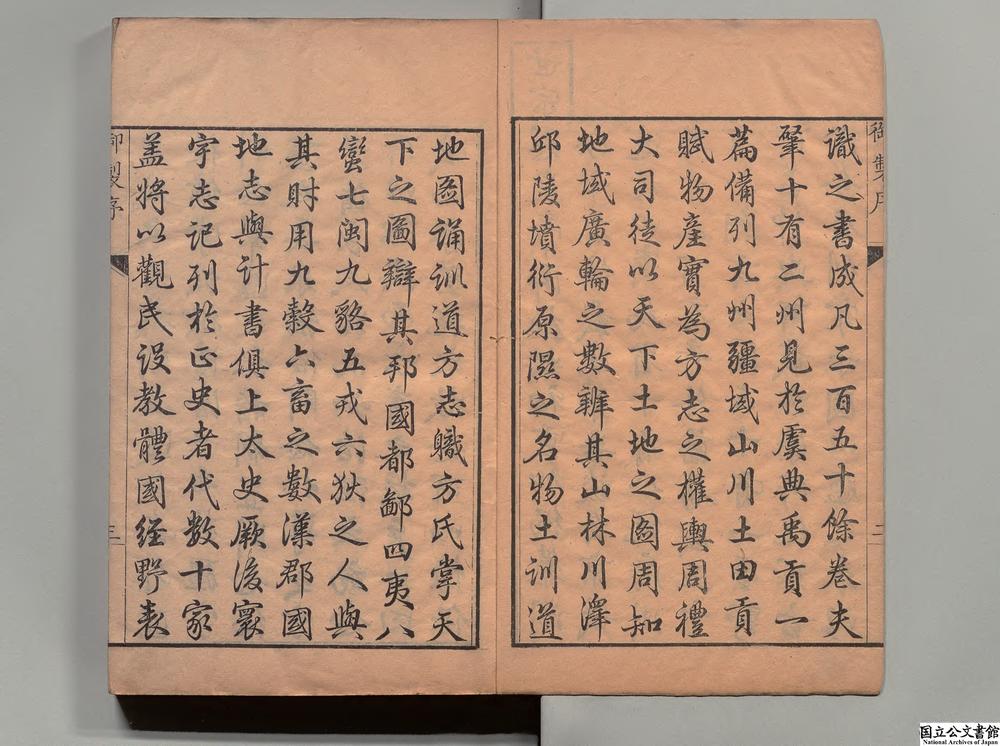 御製序
識之書成凡三百五十餘卷夫
肇十有二州見於虞典禹貢一
篇備列九州疆域山川土田貢
賦物產實為方志之權輿周禮
大司徒以天下土地之圖周知
地域廣輪之數辨其山林川澤
邱陵墳衍原隰之名物土訓道
地圖誦訓道方志職方氏掌天
下之圖辯其邦國都鄙四夷八
蠻七閩九貉五戎六狄之人與
其財用九穀六畜之數漢郡國
地志與計書俱上太史厥後寰
宇志記列於正史者代數十家
盖將以觀民設教體國經野表
御製序
三
国立公文書館
National Archives of Japan